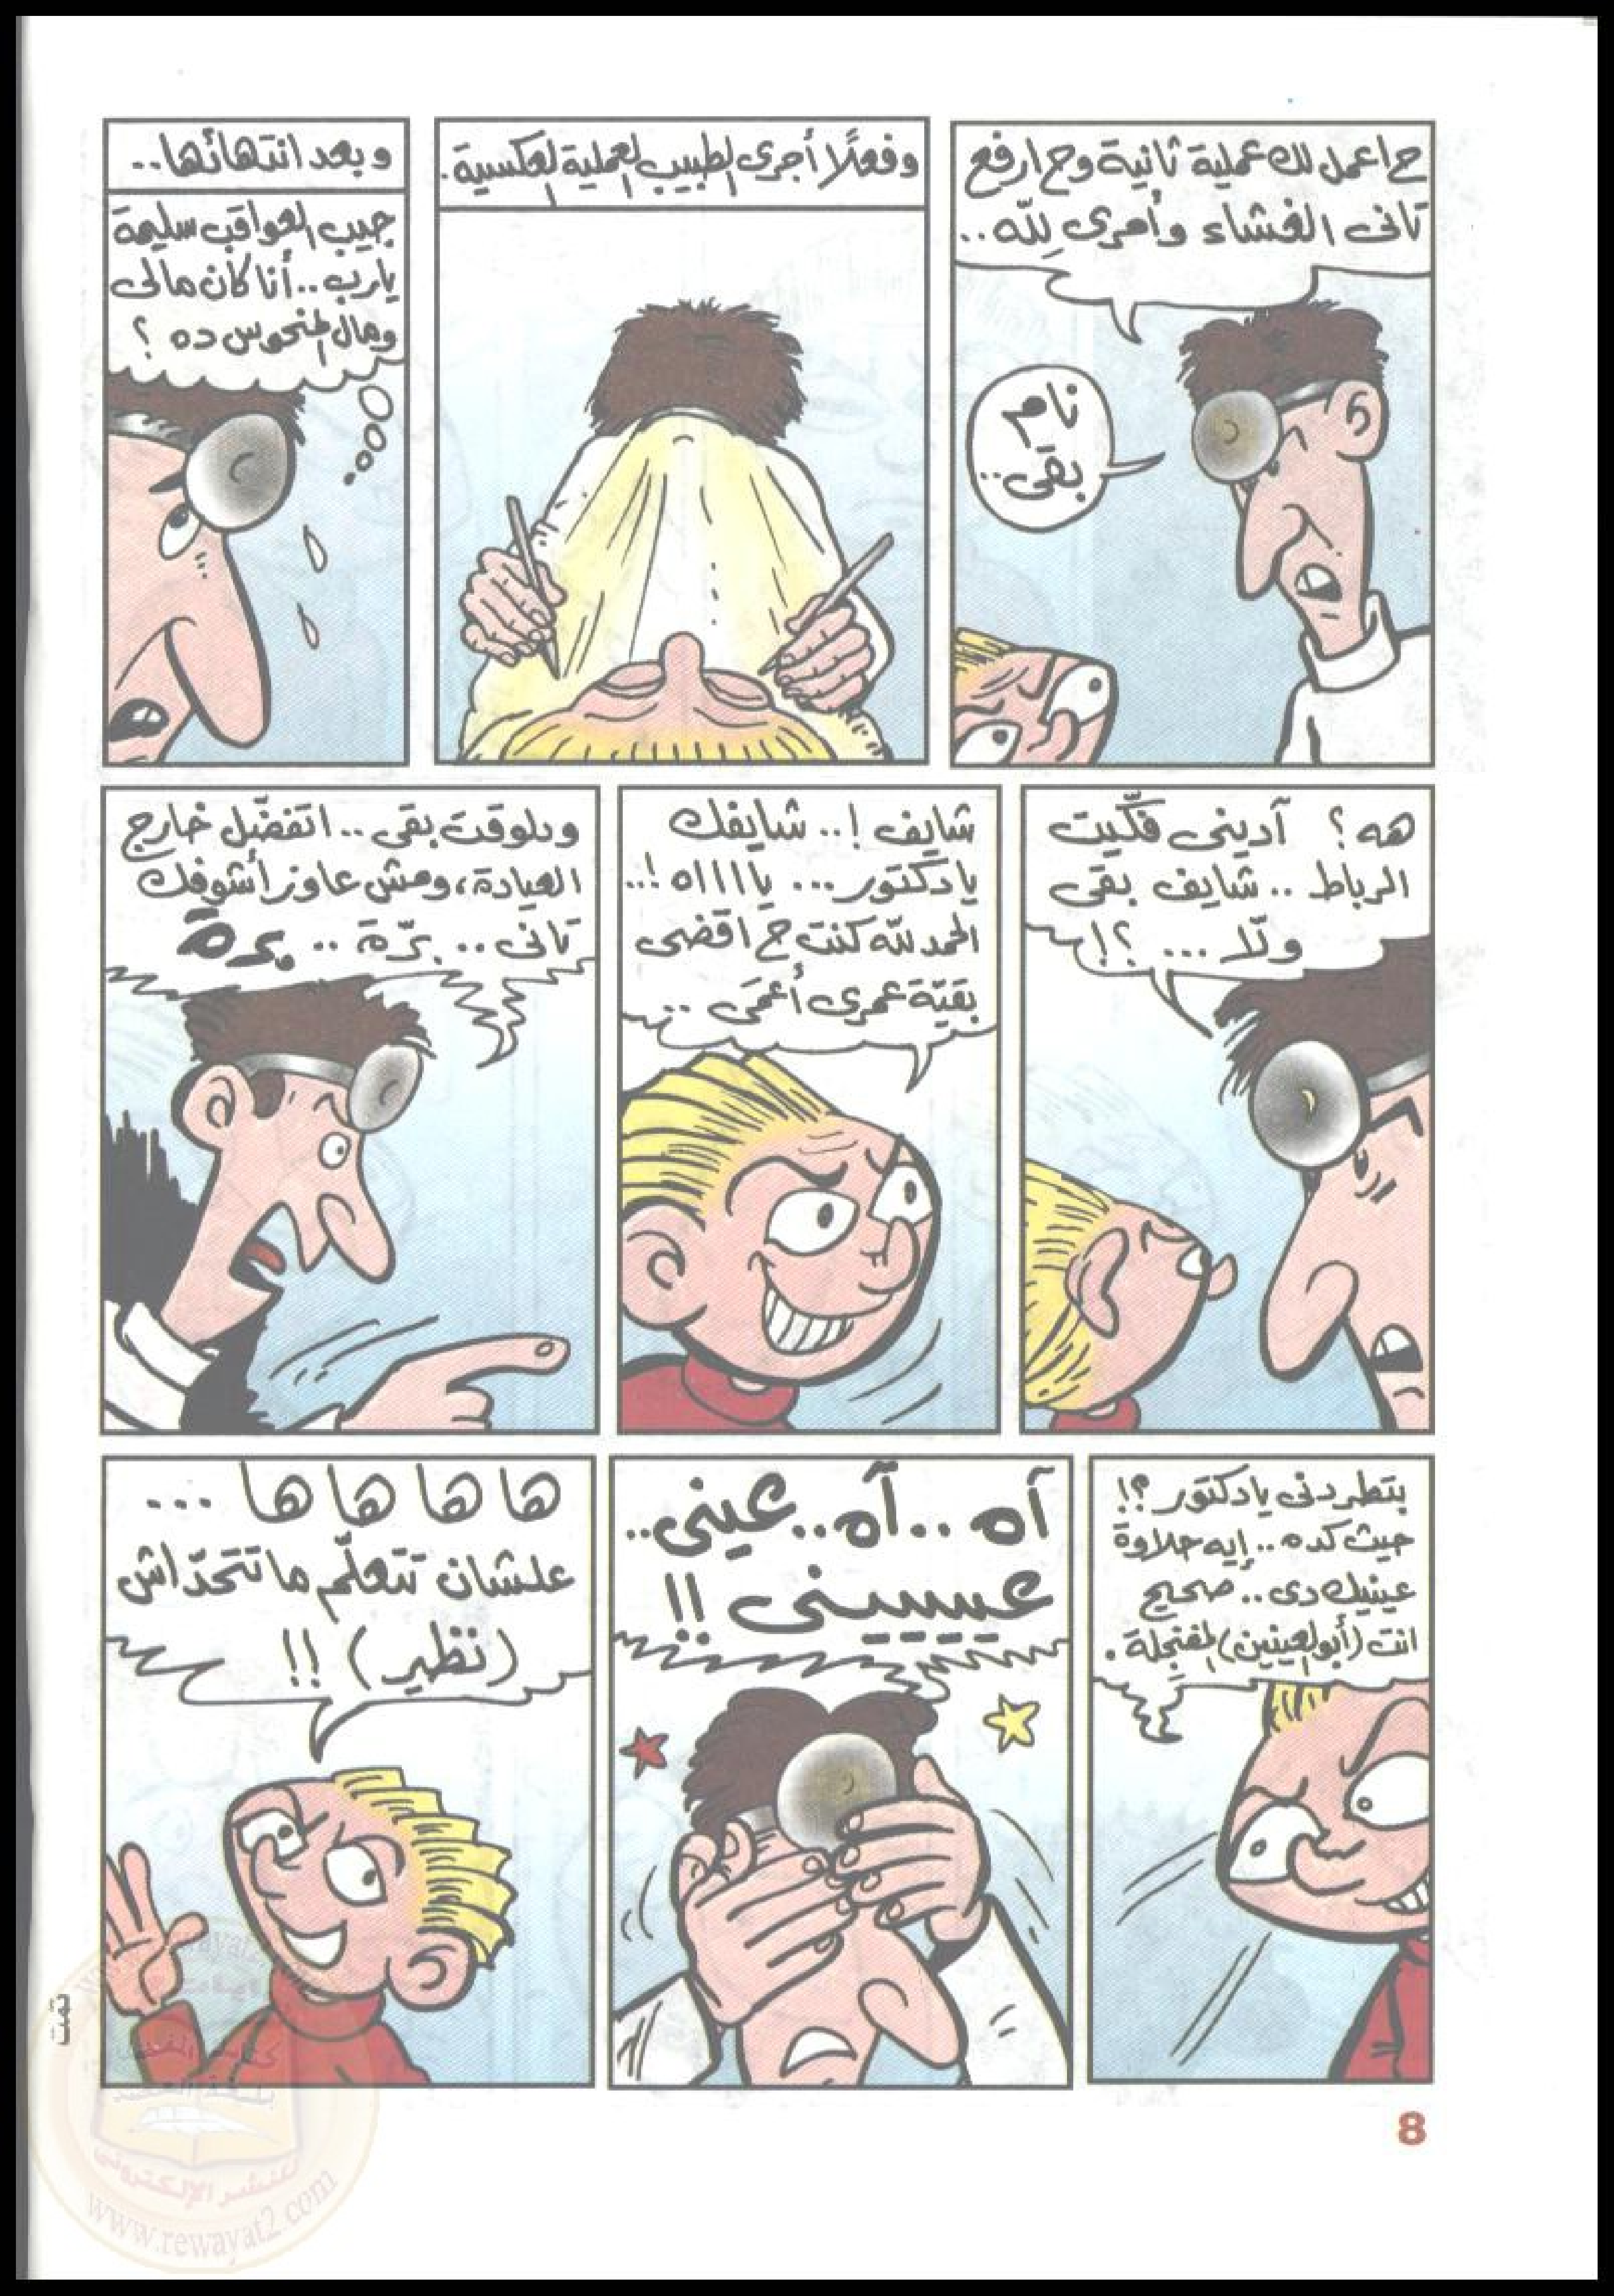 ح اعمل لك عملية ثانية وح ارفع
تانى الغشاء وأمرى لله..
نام
بقى..
وفعلًا أجرى الطبيب العملية العكسية.
وبعد انتهائها..
جيب العواقب سليمة
يارب.. أنا كان مالى
ومال المنحوس ده ؟
هه؟ آدينى فكّيت
الرباط .. شايف بقى
ولّا ... ؟!
شايف !.. شايفك
يا دكتور... ياااااه !..
الحمد لله كنت ح اقضى
بقيّة عمرى أعمَى ..
ودلوقت بقى .. اتفضّل خارج
العيادة، ومش عاوز أشوفك
تانى .. برّة .. برة
بتطردنى يا دكتور ؟!
حيث كده .. إيه حلاوة
عينيك دى .. صحيح
انت (أبو العينين) المفنجلة.
آه .. آه .. عينى ..
عيييينى !!
ها ها ها ها ...
علشان تتعلّم ما تتحدّاش
(نظير) !!
تمت
8
للنشر الإلكترونى
www.rewayat2.com